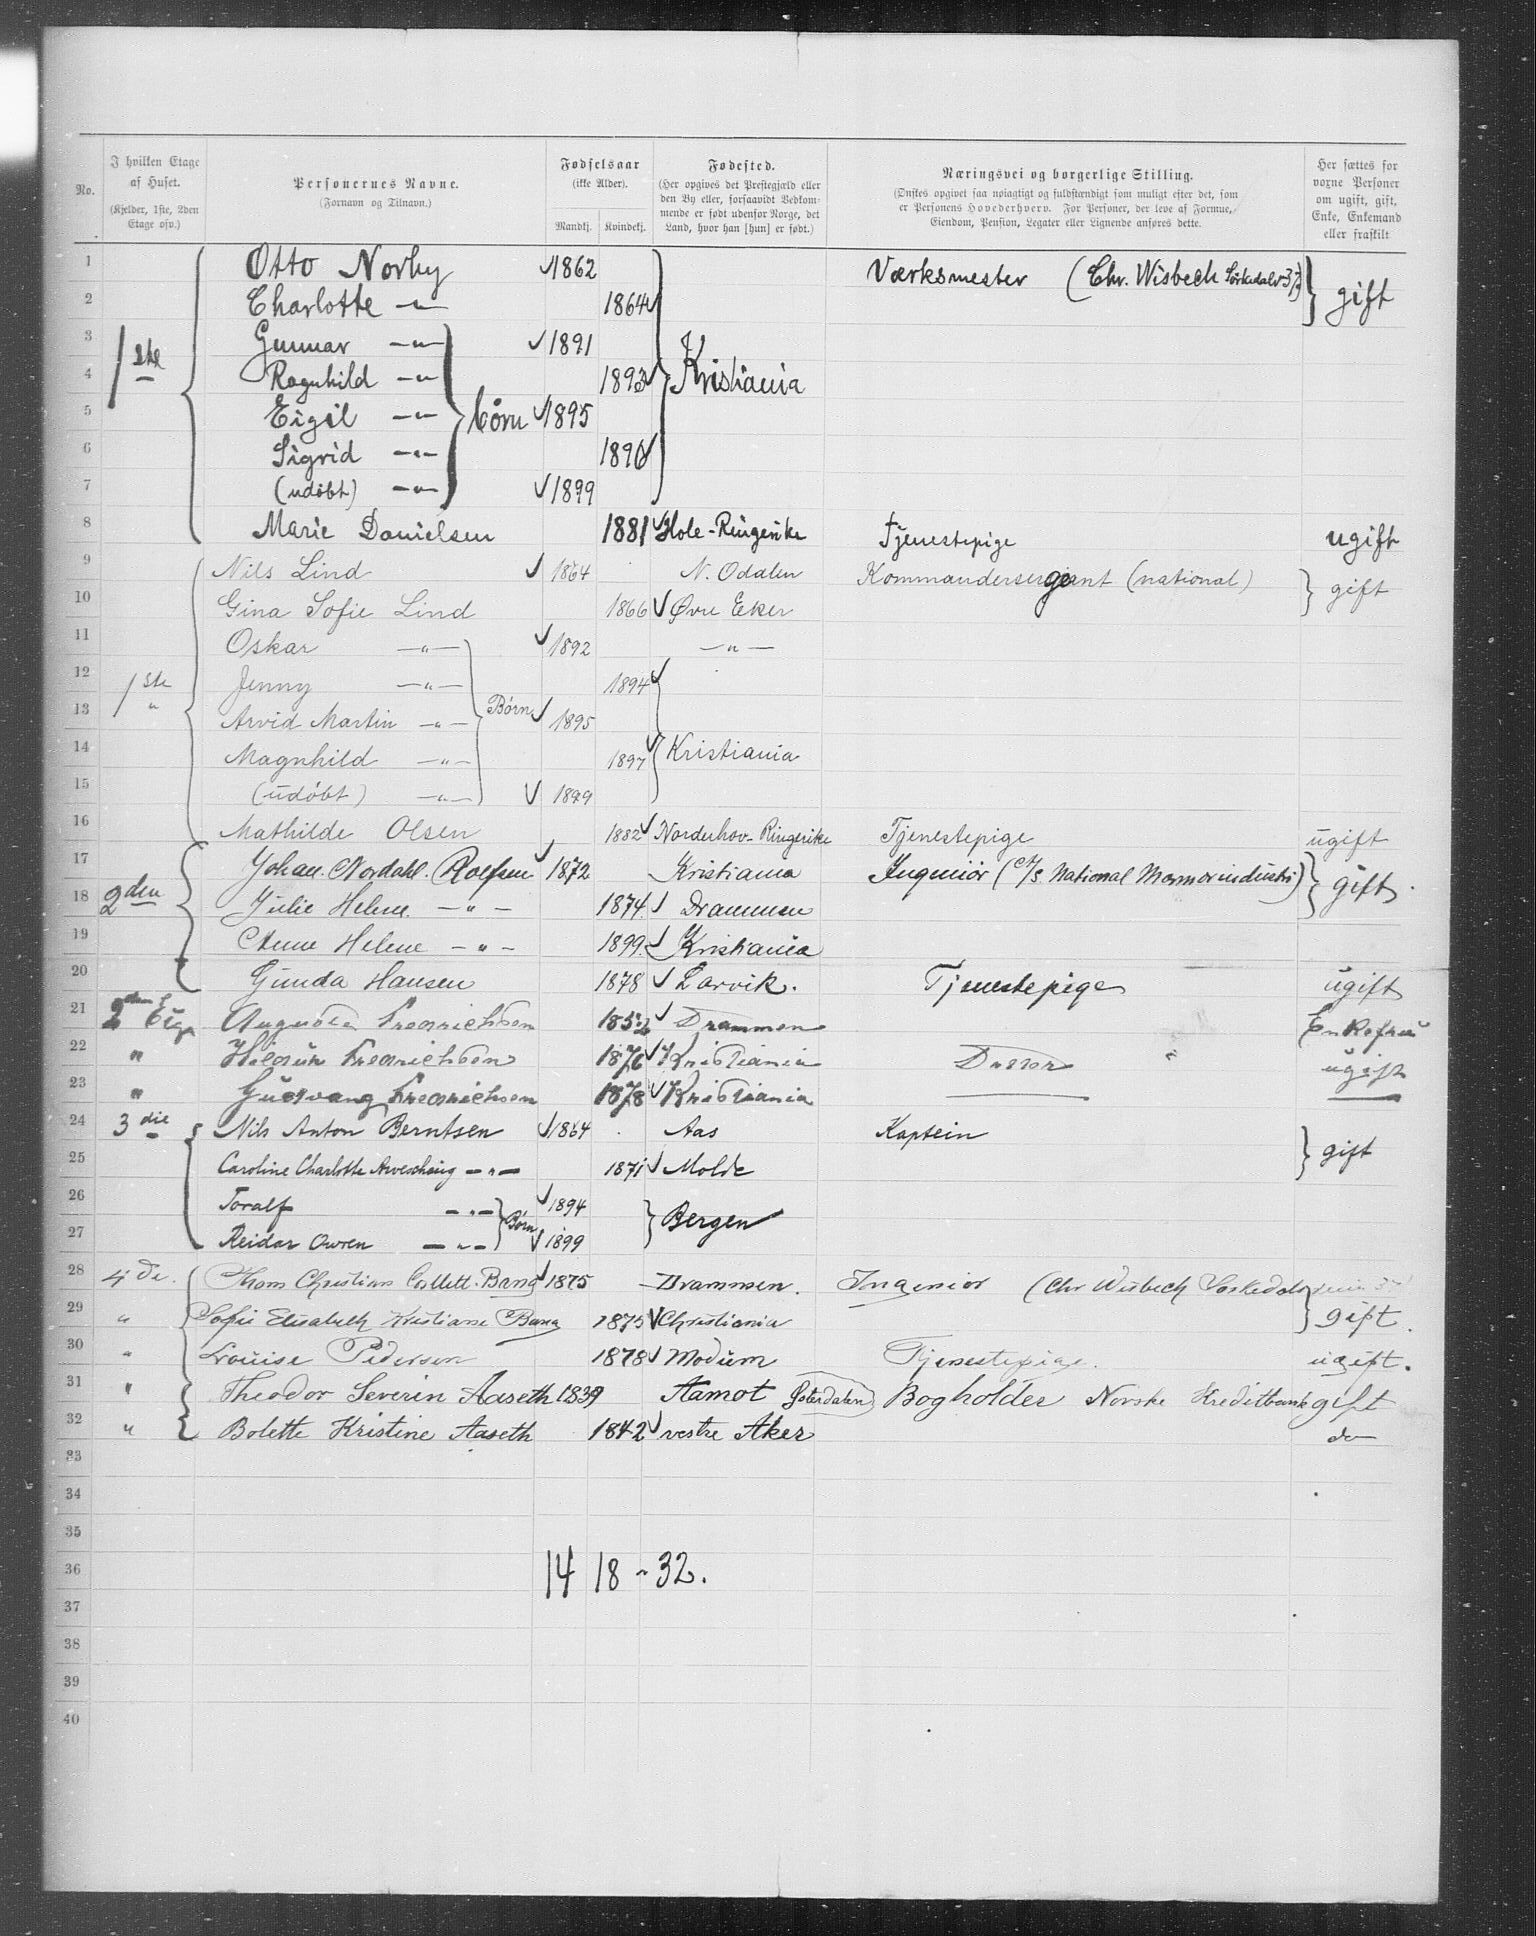 No.
I hvilken Etage af Huset. (Kjelder, 1ste, 2den Etage osv.)
Personernes Navne. (Fornavn og Tilnavn.)
Fødselsaar (ikke Alder). Mandkj. Kvindekj.
Fødested. (Her opgives det Prestegjæld eller den By eller, forsaavidt Vedkommende er født udenfor Norge, det Land, hvor han [hun] er født.)
Næringsvei og borgerlige Stilling. (Ønskes opgivet saa nøiagtigt og fuldstændigt som muligt efter det, som er Personens Hovederhverv. For Personer, der leve af Formue, Eiendom, Pension, Legater eller Lignende anføres dette.
Her sættes for voxne Personer om ugift, gift, Enke, Enkemand eller fraskilt
1 Otto Norby 1862 Værksmester (Chr. Wisbech Sørkedalsv 37) gift
2 Charlotte —"— 1864
3 1ste Gunnar —"— 1891
4 Ragnhild —"— 1893 Kristiania
5 Eigil —"— børn 1895
6 Sigrid —"— 1896
7 (udøbt) —"— 1899
8 Marie Danielsen 1881 Hole-Ringerike Tjenestepige ugift
9 Nils Lind 1864 N. Odalen Kommandersergeant (national) gift
10 Gina Sofie Lind 1866 Øvre Eker
11 Oskar —"— 1892 —"—
12 1ste Jenny —"— 1894
13 " Arvid Martin —"— Børn 1895
14 Magnhild —"— 1897 Kristiania
15 (udøbt) —"— 1899
16 Mathilde Olsen 1882 Norderhov-Ringerike Tjenestepige ugift
17 Johan Nordahl Rolfsen 1872 Kristiania Ingeniør (A/S National Marmorindustri) gift
18 2den Julie Helene —"— 1874 Drammen
19 Anne Helene —"— 1899 Kristiania
20 Gunda Hansen 1878 Larvik. Tjenestepige ugift
21 2den Etg Augusta Fredrichsen 1852 Drammen Enkefru
22 " Fredrichsen 1876 Kristiania ugift
23 " Gudvang Fredrichsen 1878 Kristiania
24 3die Nils Anton Berntsen 1864 Aas Kaptein gift
25 Caroline Charlotte —"— 1871 Molde
26 Toralf —"— Børn 1894 Bergen
27 Reidar Owren —"— 1899
28 4de. Thom Christian Collett Bang 1875 Drammen. Ingeniør (Chr Wisbech
29 " Sofie Elisabeth Kristiane Bang 1875 Christiania gift.
30 " Louise Pedersen 1878 Modum Tjenestepige. ugift.
31 " Theodor Severin Aaseth 1839 Aamot Østerdalen Bogholder Norske Kreditbank gift
32 " Bolette Kristine Aaseth 1842 vestre Aker do
33
34
35
36 14 18 - 32.
37
38
39
40